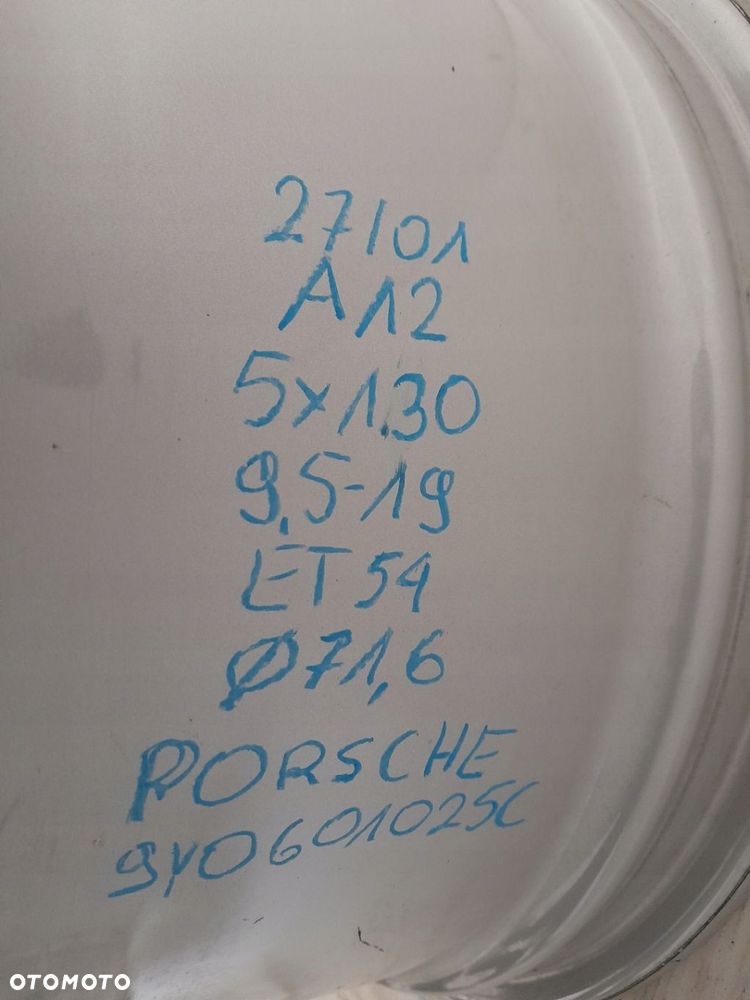 27/01
A12
5x130
9,5-19
ET54
Ø71,6
PORSCHE
9Y0601025C
OTOMOTO